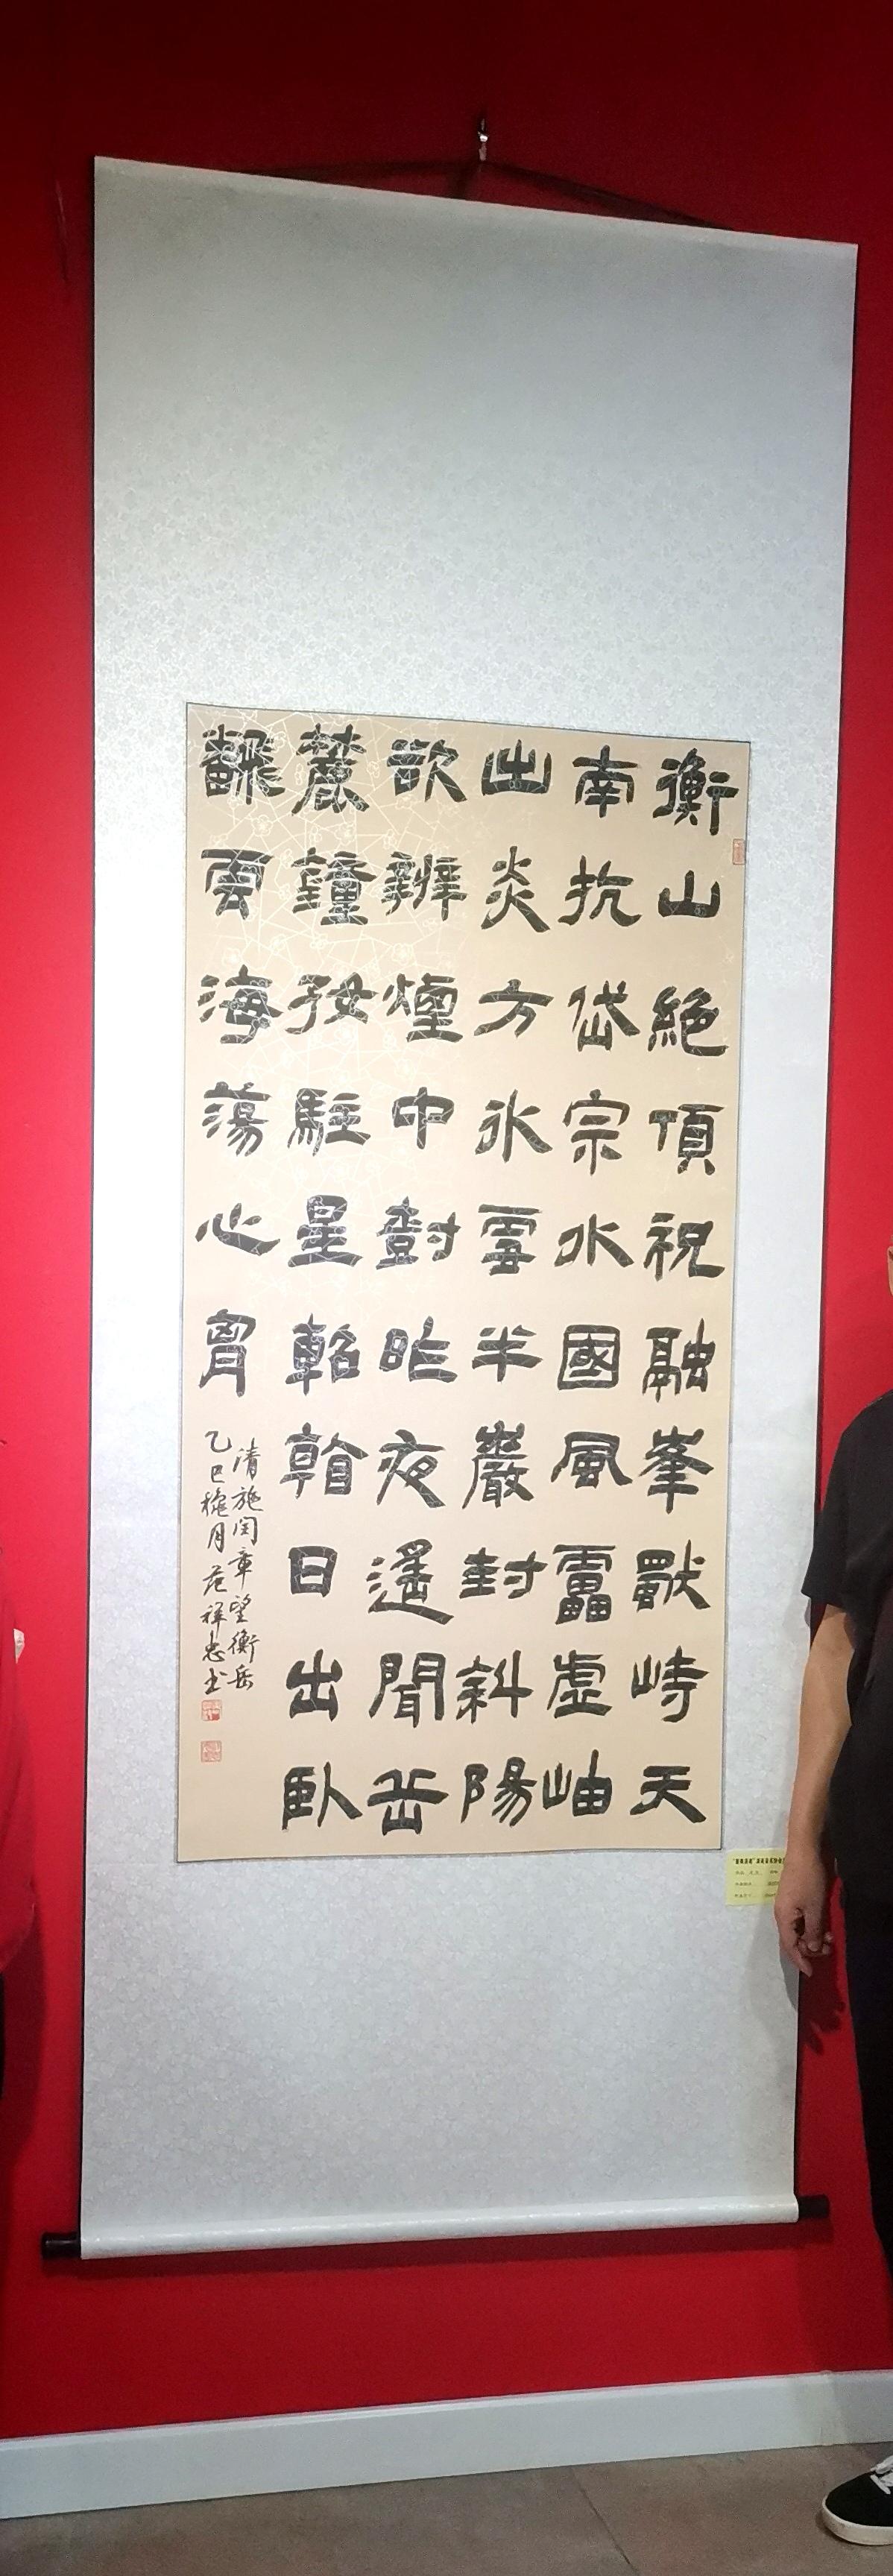 衡山絕頂祝融峯獸峙天
南抗岱宗水國風靁虛岫
出炎方冰雪半巖封斜陽
欲辨煙中樹昨夜遙聞岳
麓鐘孜駐星軺翰日出臥
飜雲海蕩心胷
清施閏章望衡岳
乙巳榴月范祥忠书